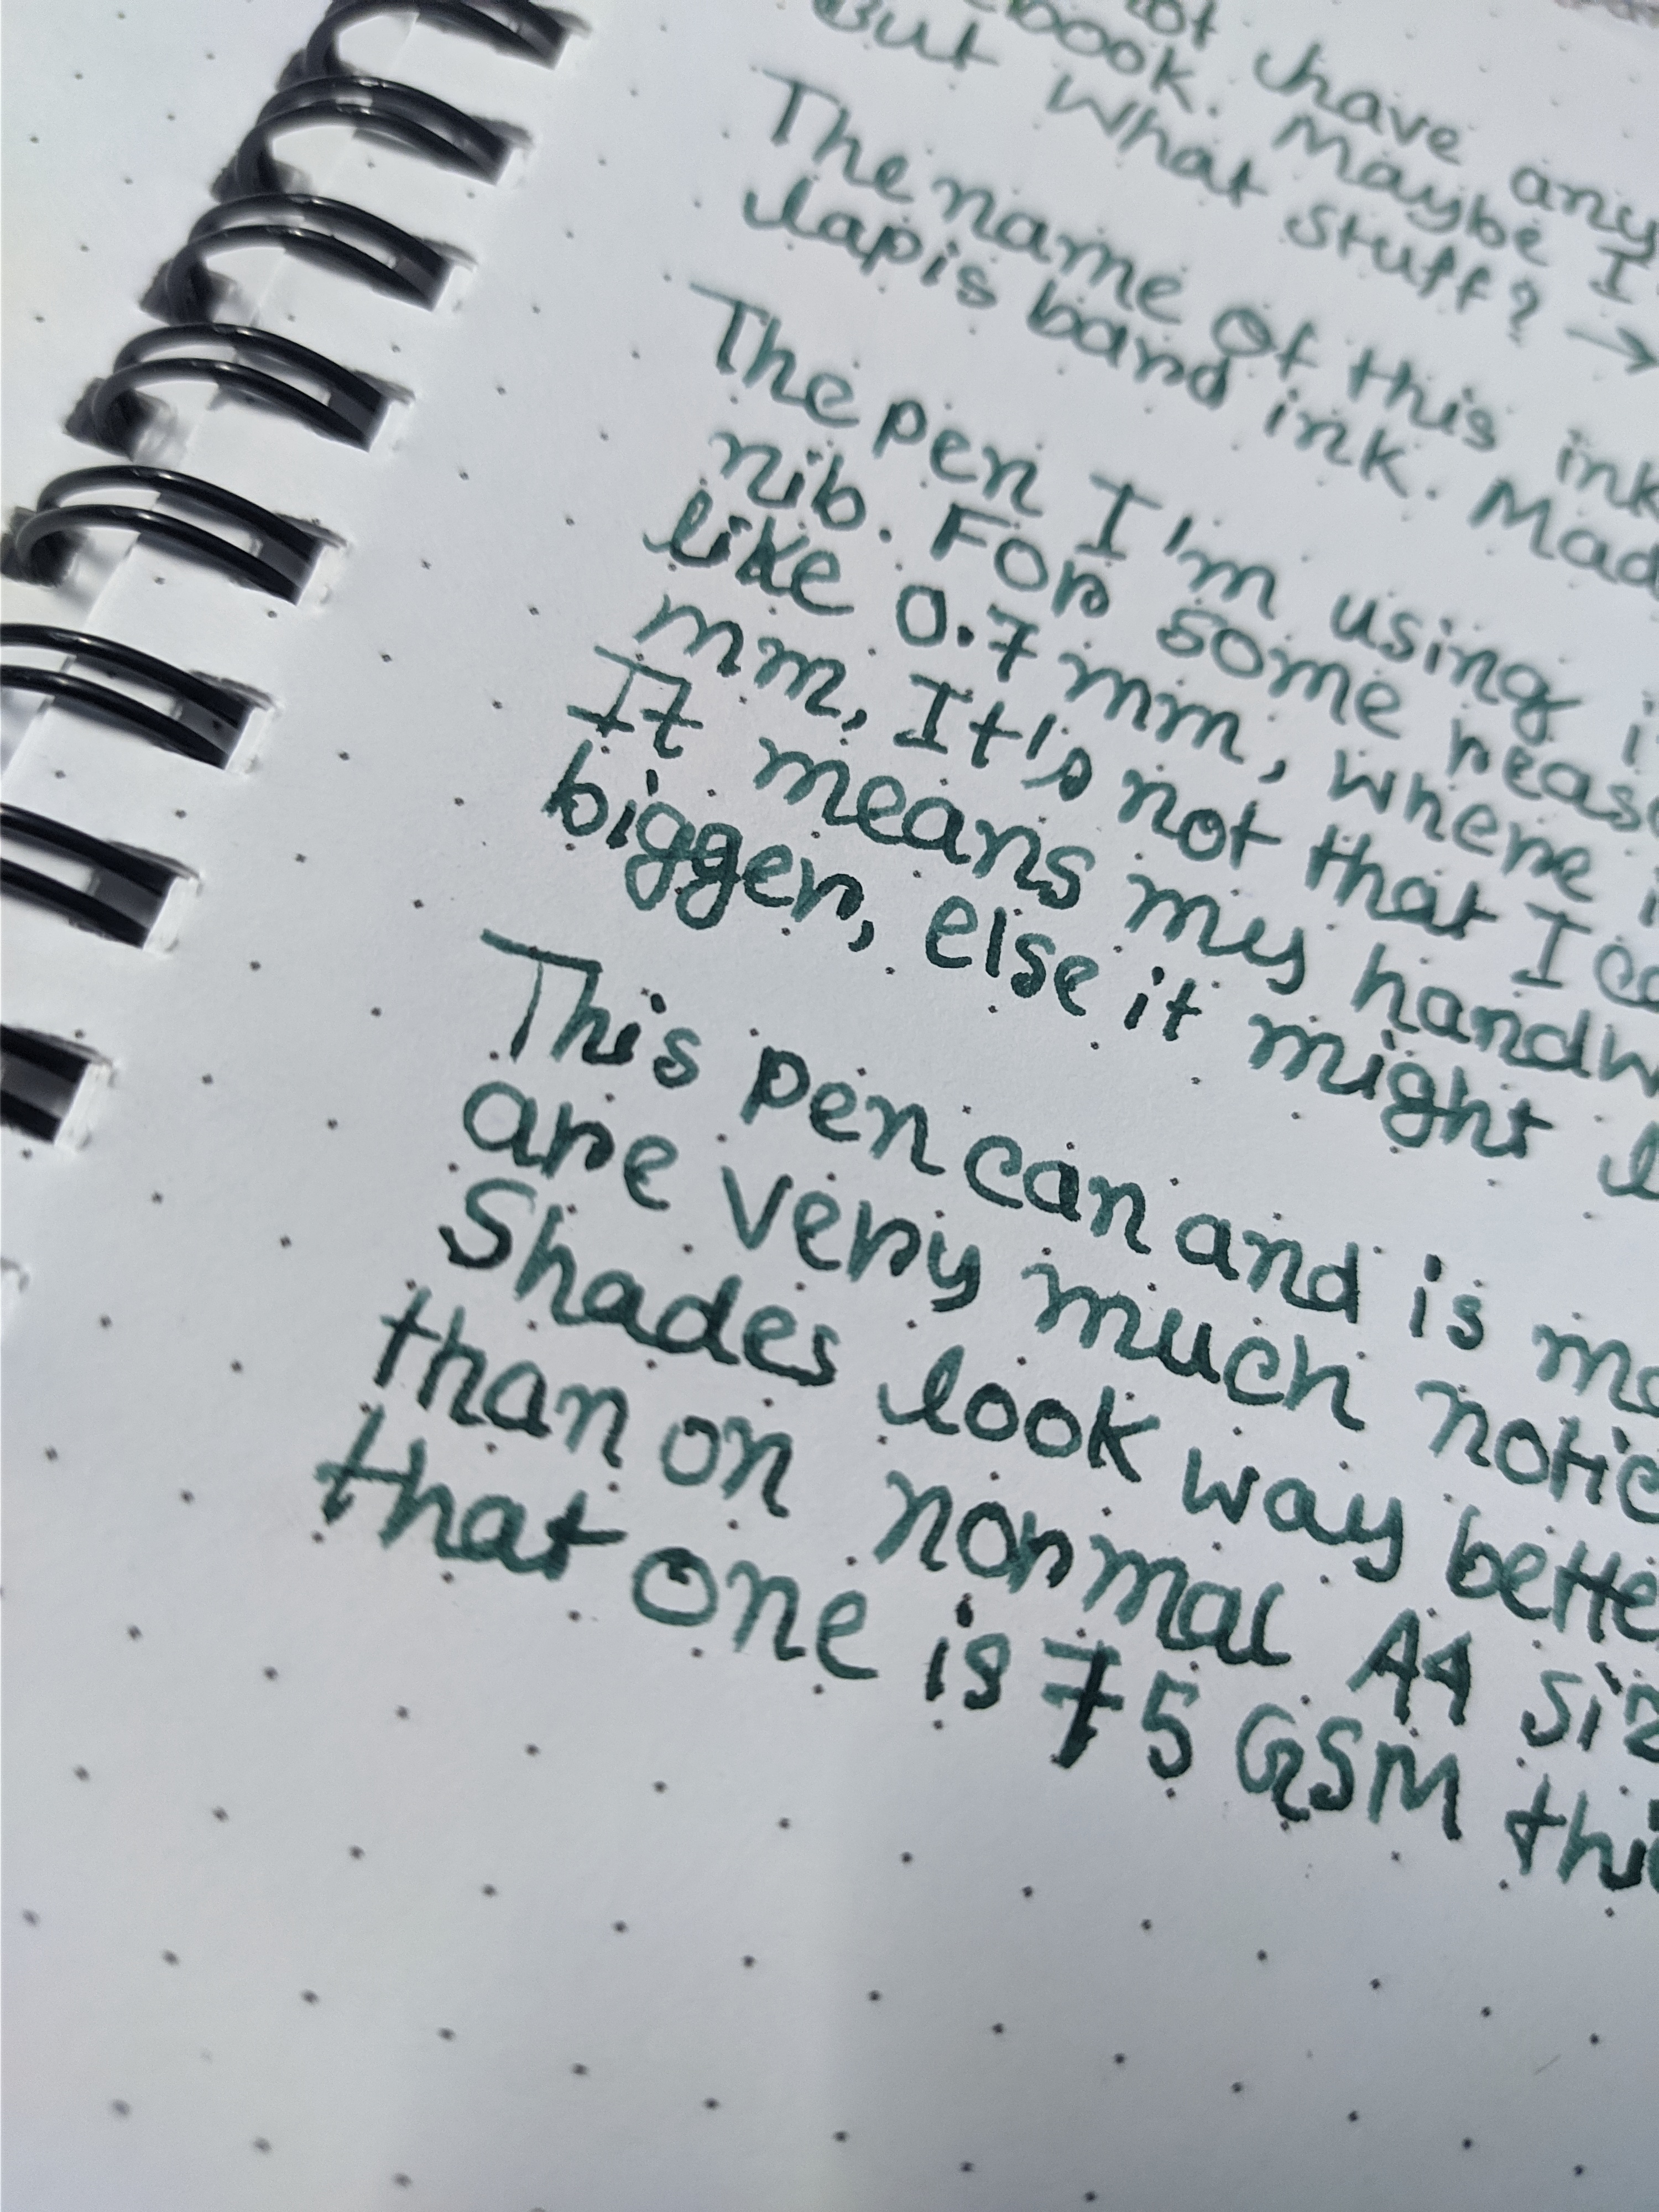 not have any
book. Maybe I
But what stuff? →
The name of this ink
lapis band ink. Mad
The pen I'm using i
nib. For some reas
like 0.7 mm, where i
mm, It's not that I ca
It means my handw
bigger, else it might l
This pen can and is mo
are very much notic
Shades look way bette
than on normal A4 siz
that one is 75 GSM thi